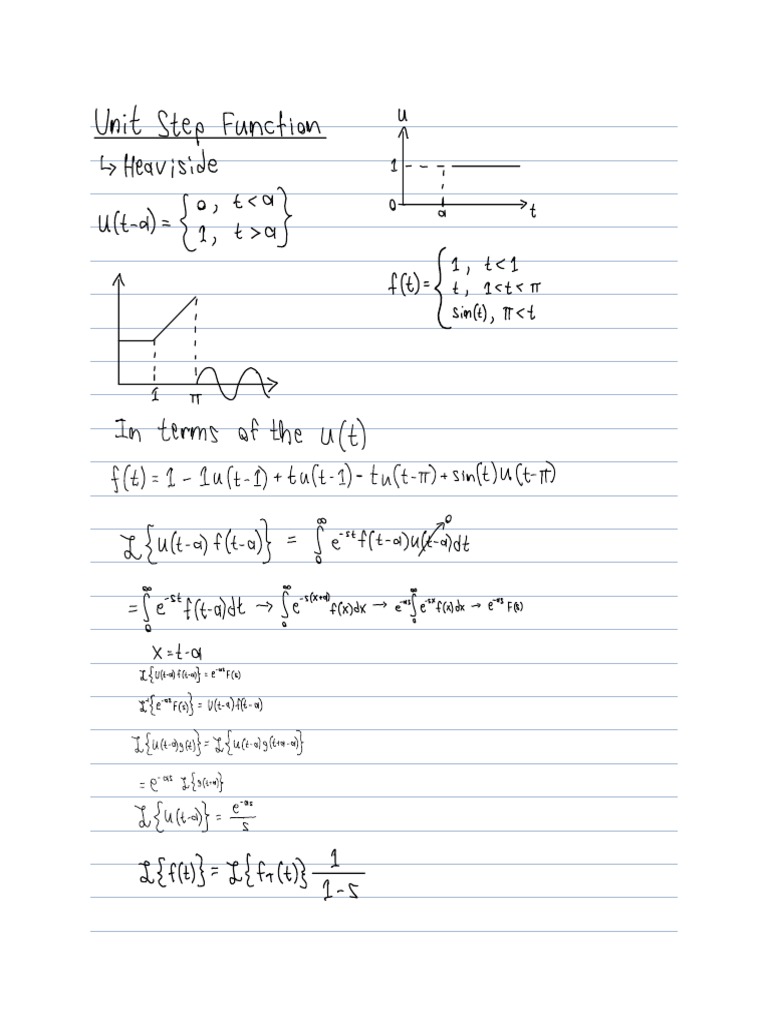 Unit Step Function
↳ Heaviside
u(t-a) = { 0, t<a
1, t>a }
u
1
0 a t
f(t) = { 1, t<1
t, 1<t<π
sin(t), π<t
1 π
In terms of the u(t)
f(t) = 1 - 1u(t-1) + tu(t-1) - tu(t-π) + sin(t)u(t-π)
ℒ{u(t-a) f(t-a)} = ∫₀^∞ e^-st f(t-a)u(t-a)dt 0
= ∫₀^∞ e^-st f(t-a)dt → ∫₀^∞ e^-s(x+a) f(x)dx → e^-as ∫₀^∞ e^-sx f(x)dx → e^-as F(s)
x = t-a
ℒ{u(t-a) f(t-a)} = e^-as F(s)
ℒ⁻¹{e^-as F(s)} = u(t-a) f(t-a)
ℒ{u(t-a)g(t)} = ℒ{u(t-a)g(t+a-a)}
= e^-as ℒ{g(t+a)}
ℒ{u(t-a)} = e^-as/s
ℒ{f(t)} = ℒ{f_T(t)} 1/(1-s)